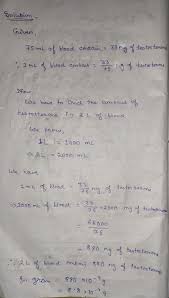 Solution -
Given
75 mL of blood contain = 33 ng of testosterone
∴ 1 mL of blood contains = 33/75 ng of testosterone
Now
We have to find the amount of
testosterone in 2L of blood
We know,
1L = 1000 mL
∴ 2L = 2000 mL
We have
1 mL of blood = 33/75 ng of testosterone
∴ 2000 mL of blood = 33/75 × 2000 ng of testosterone
= 66000/75
= 880 ng of testosterone
∴ 2L of blood contain 880 ng of testosterone
In gram = 880 × 10⁻⁹ g
= 8.8 × 10⁻⁷ g